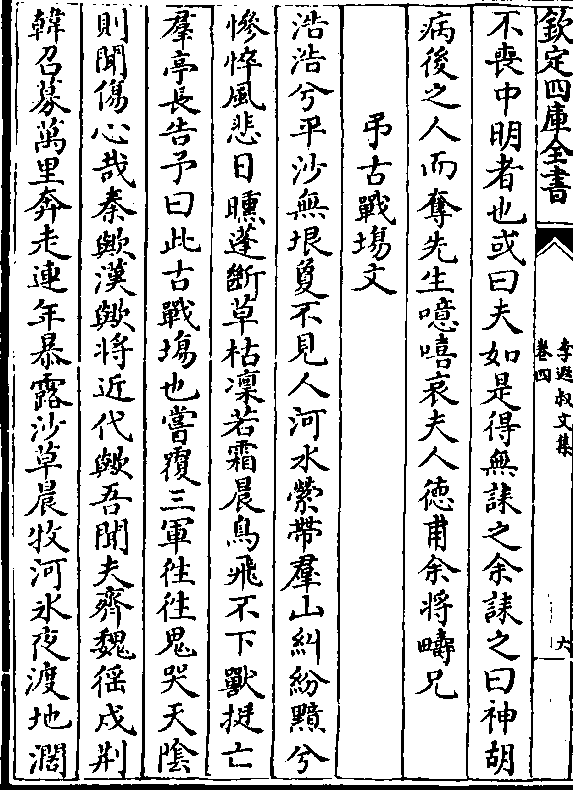 欽定四庫全書
李遐叔文集
卷四
六
不喪中明者也或曰夫如是得無誄之余誄之曰神胡
病後之人而奪先生噫嘻哀夫人德甫余將疇兄
弔古戰塲文
浩浩兮平沙無垠敻不見人河水縈帶羣山糾紛黯兮
慘悴風悲日曛蓬斷草枯凛若霜晨鳥飛不下獸挺亡
羣亭長告予曰此古戰塲也嘗覆三軍往往鬼哭天陰
則聞傷心哉秦歟漢歟將近代歟吾聞夫齊魏徭戍荆
韓召募萬里奔走連年暴露沙草晨牧河氷夜渡地濶